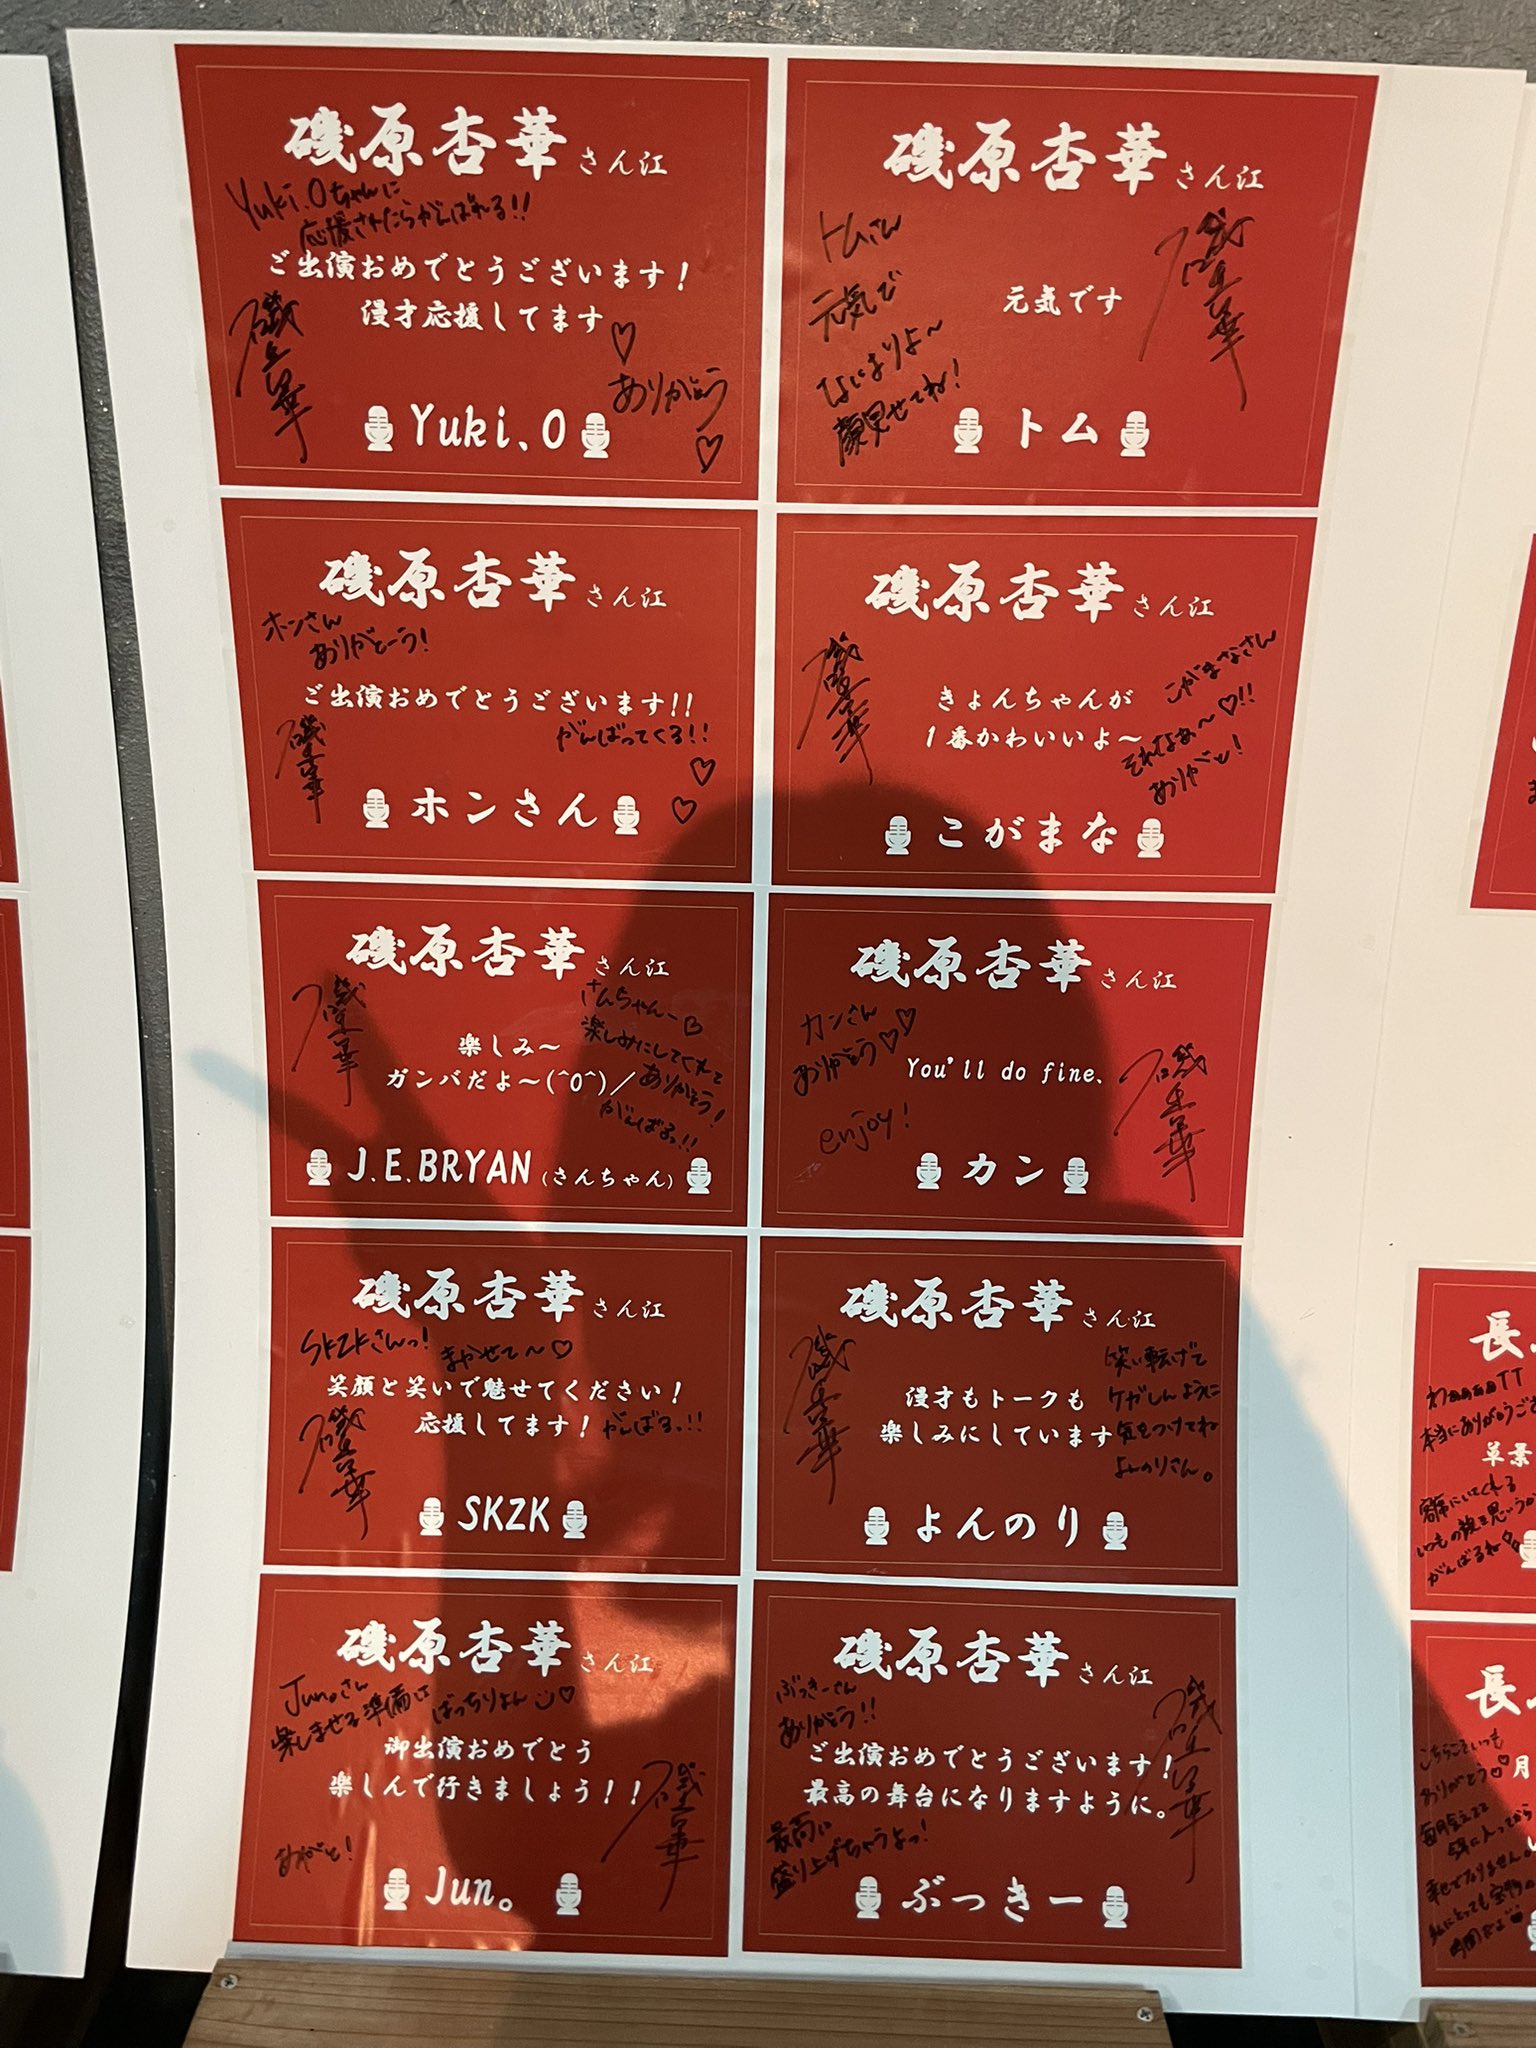 磯原杏華さん江
Yuki.Oちゃんに
応援されたらがんばれる!!
ご出演おめでとうございます!
漫才応援してます
ありがとう
Yuki.O
磯原杏華さん江
トムさん
元気で
なによりよ〜
顔見せてね!
元気です
トム
磯原杏華さん江
ホンさん
ありがとーう!
ご出演おめでとうございます!!
がんばってくる!!
ホンさん
磯原杏華さん江
こがまなさん
きょんちゃんが
1番かわいいよ〜
それなぁ〜♡!!
ありがと!
こがまな
磯原杏華さん江
さんちゃんー
楽しみにしてくれて
ありがとう!
がんばるっ!!
楽しみ〜
ガンバだよ〜(^O^)/
J.E.BRYAN(さんちゃん)
磯原杏華さん江
カンさん
ありがとう♡♡
You'll do fine.
enjoy!
カン
磯原杏華さん江
SKZKさんっ!
まかせて〜♡
笑顔と笑いで魅せてください!
応援してます!
がんばるっ!!
SKZK
磯原杏華さん江
笑い転げて
ケガしんように
気をつけてね
よんのりさん。
漫才もトークも
楽しみにしています
よんのり
磯原杏華さん江
Jun。さん
楽しませる準備は
ばっちりよん
御出演おめでとう
楽しんで行きましょう!!
ありがと!
Jun。
磯原杏華さん江
ぶっきーさん
ありがとう!!
ご出演おめでとうございます!
最高の舞台になりますように。
最高に
盛り上げちゃうよっ!
ぶっきー
長
わぁぁぁぁTT
本当にありがとうご
草葉
客席にいてくれる
がんばるね
長
こちらこそいつも
ありがとう
月
幸せでなりません
私にとっても宝物